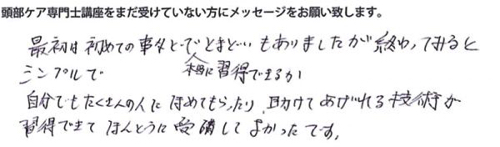 頭部ケア専門士講座をまだ受けていない方にメッセージをお願い致します。
最初は初めての事なとでとまど…もありましたが終わってみると
シンプルで 習得できるか
自分でもたくさんの人にほめてもらったり、助けてあげれる技術が
習得できてほんとうに受講してよかったです。